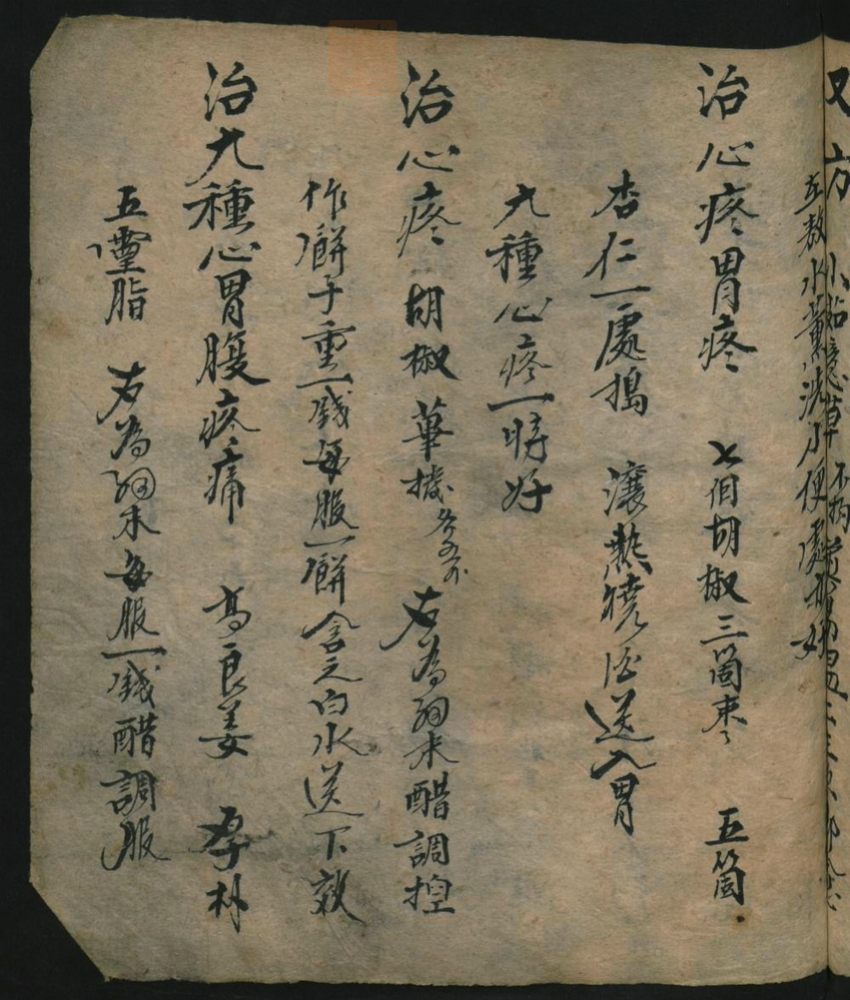 又方
水薰洗小便處
治心疼胃疼 七个胡椒三箇枣 五箇
杏仁一處搗 滾熱燒酒送入胃
九種心疼一時好
治心疼 胡椒 蓽撥 右為細末醋調捏
作餅子重一錢每服一餅含之白水送下效
治九種心胃腹疼痛 高良姜 厚朴
五靈脂 右為細末每服一錢醋調服